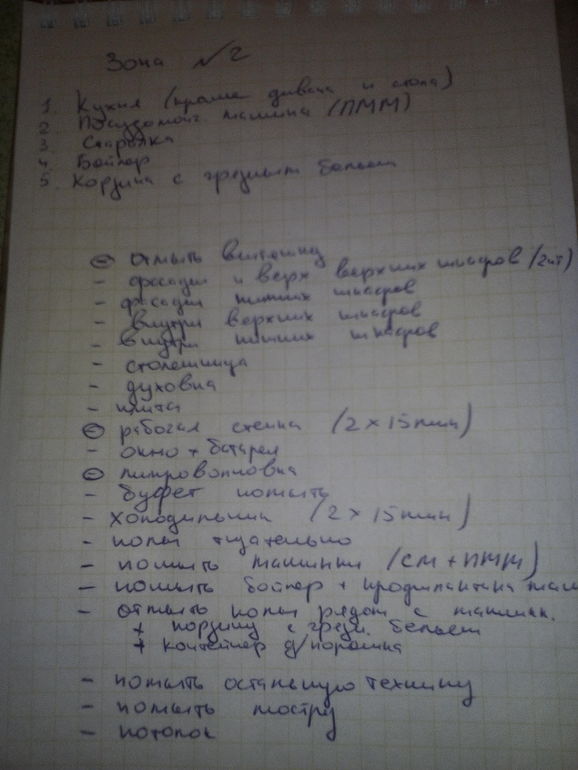 Зона №2
1. Кухня (кроме дивана и стола)
2. Посудомоеч. машина (ПММ)
3. Стиралка
4. Бойлер
5. Корзина с грязным бельем
⊖ отмыть вытяжку
- фасады и верх верхних шкафов (2шт)
- фасады нижних шкафов
- внутри верхних шкафов
- внутри нижних шкафов
- столешница
- духовка
- плита
⊖ рабочая стенка (2 x 15 мин)
- окно + батарея
⊖ микроволновка
- буфет помыть
- холодильник (2 x 15 мин)
- полы тщательно
- помыть машинки (СМ + ПММ)
- помыть бойлер + профилактика маш
- отмыть полы рядом с машинк.
+ корзину с грязн. бельем
+ контейнер д/порошка
- помыть остальную технику
- помыть люстру
- потолок